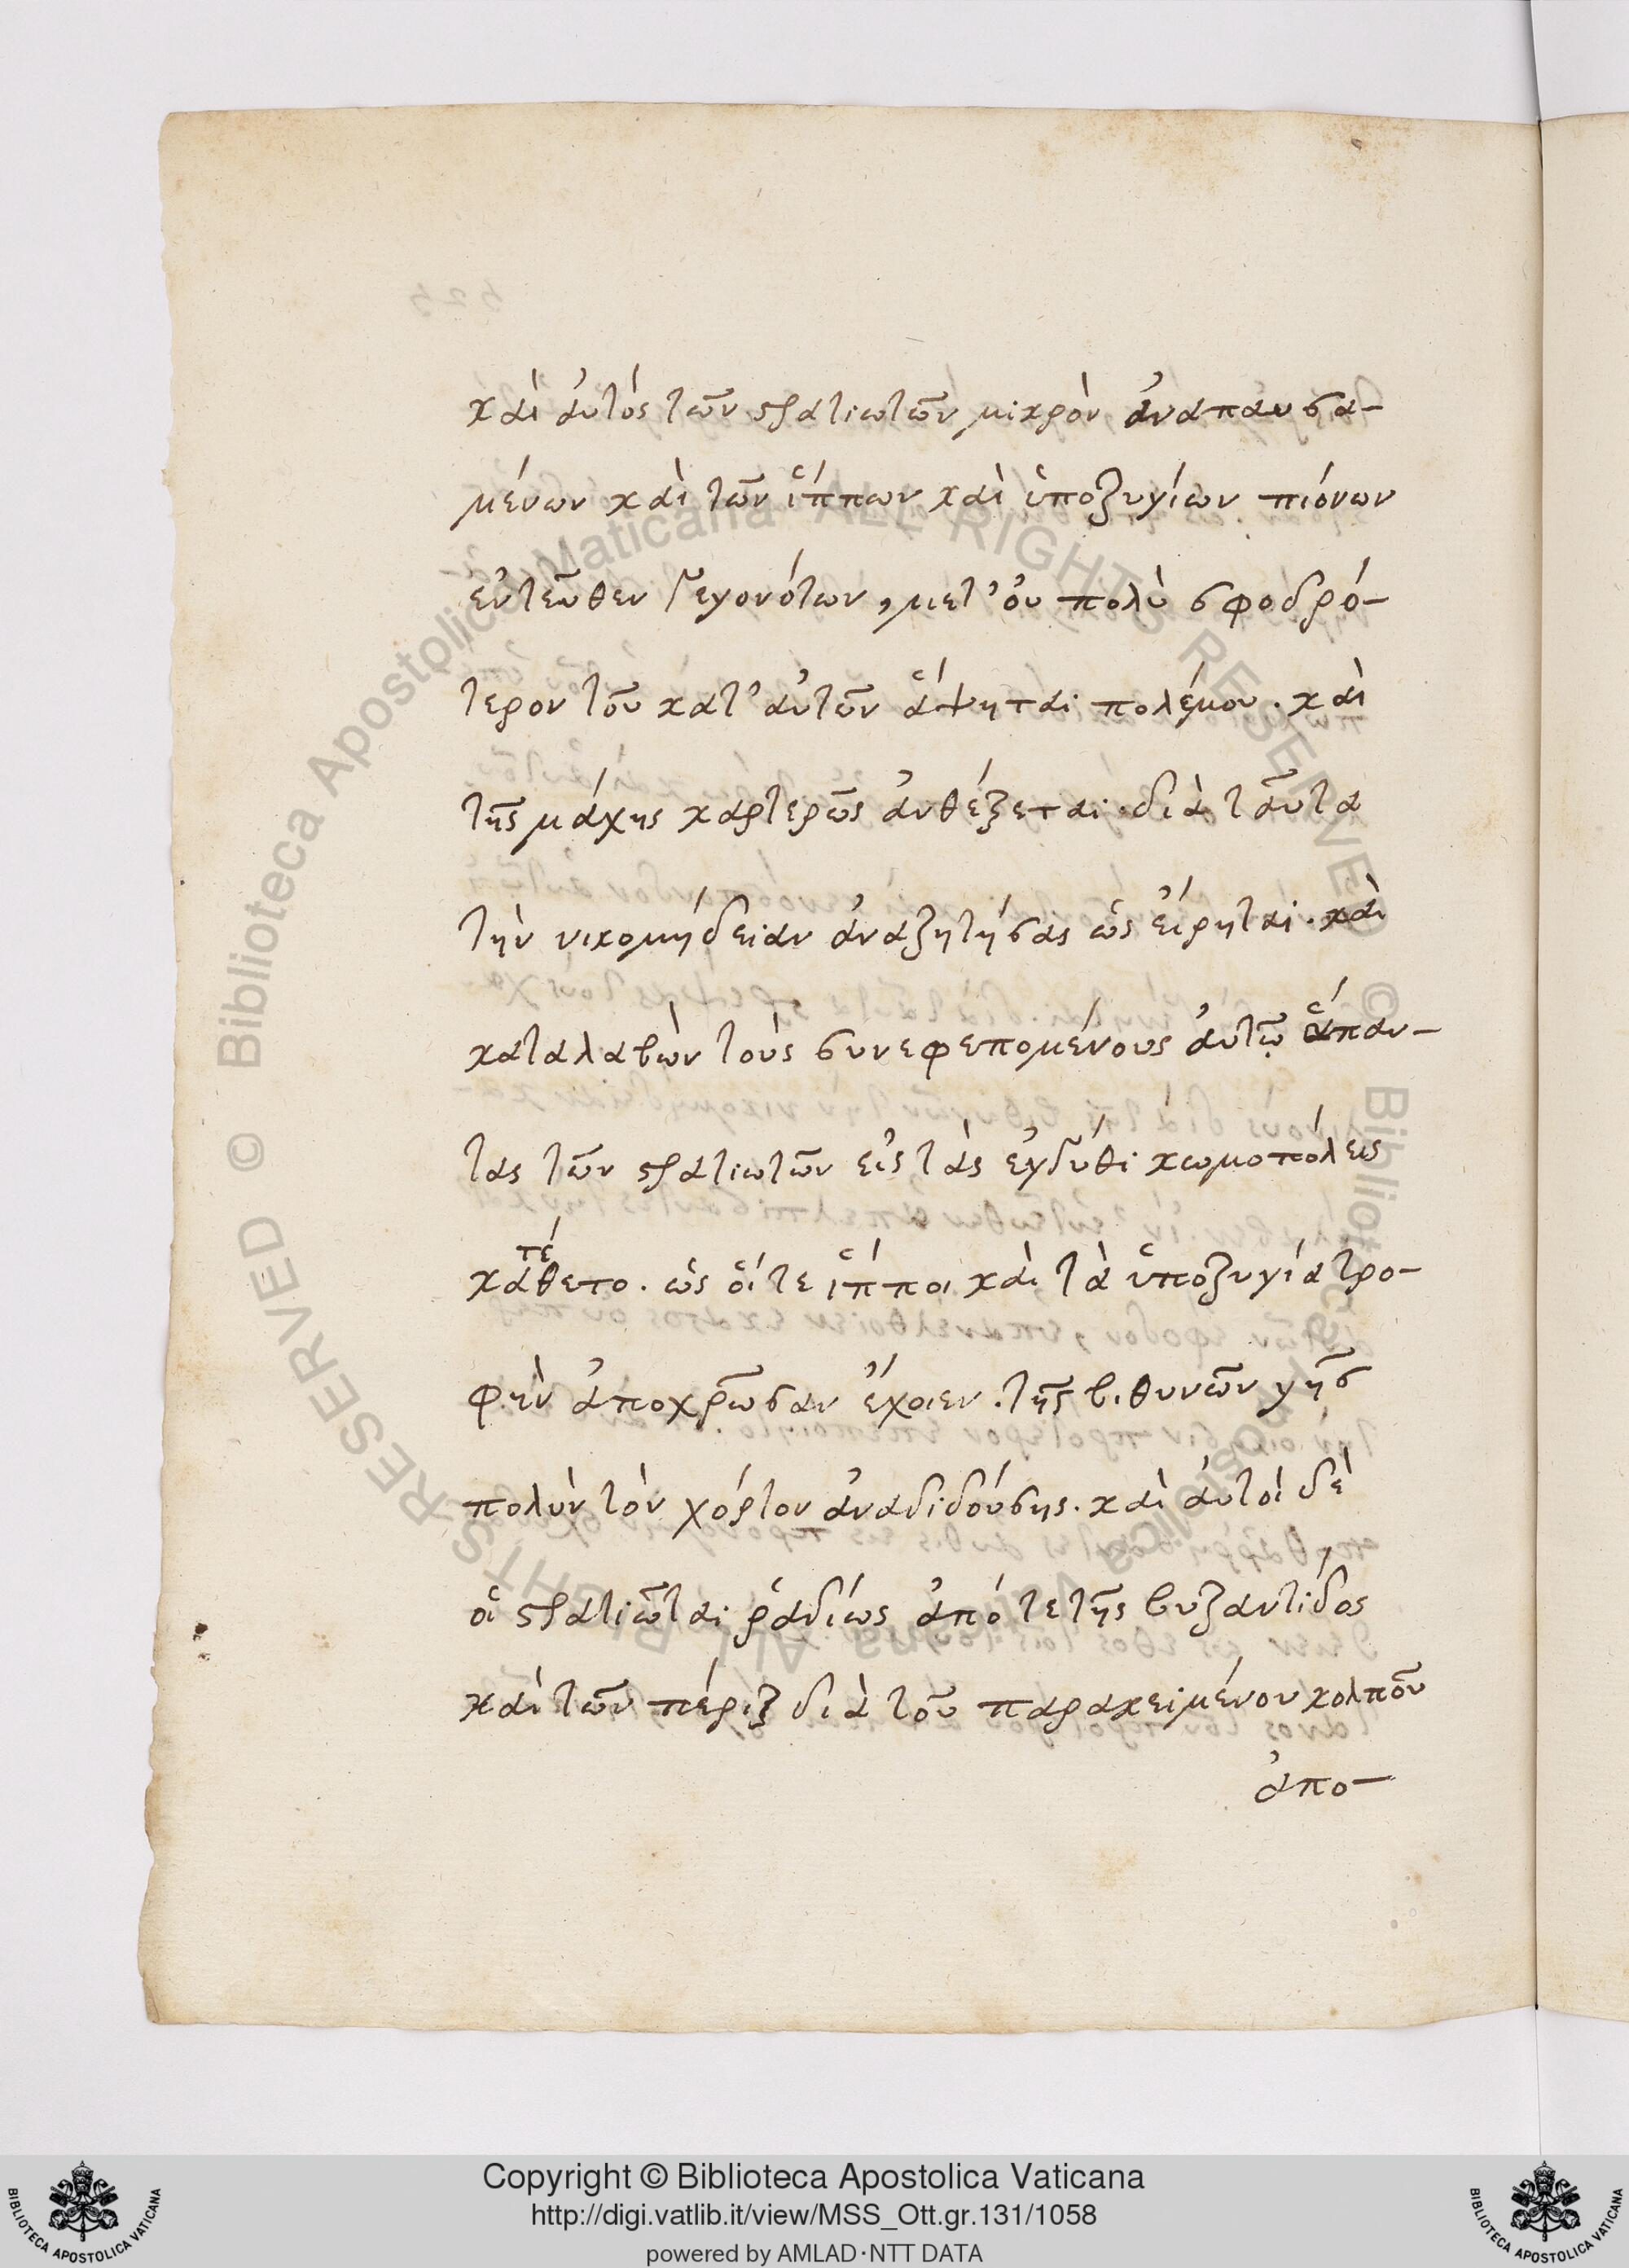 καὶ αὐτὸς τῶν στρατιωτῶν μικρὸν ἀναπαυσα-
μένων καὶ τῶν ἵππων καὶ ὑποζυγίων πιόνων
ἐντεῦθεν γεγονότων, μετ' οὐ πολὺ σφοδρό-
τερον τοῦ κατ' αὐτῶν ἅψηται πολέμου. καὶ
τῆς μάχης καρτερῶς ἀνθέξεται. διὰ ταῦτα
τὴν νικομήδειαν ἀναζητήσας ὡς εἴρηται. καὶ
καταλαβὼν τοὺς συνεφεπομένους αὐτῷ ἅπαν-
τας τῶν στρατιωτῶν εἰς τὰς ἐγγύθι κωμοπόλεις
κατέθετο. ὡς οἵ τε ἵπποι καὶ τὰ ὑποζυγία τρο-
φὴν ἀποχρῶσαν ἔχοιεν. τῆς βιθυνῶν γῆς
πολὺν τὸν χόρτον ἀναδιδούσης. καὶ αὐτοὶ δὲ
οἱ στρατιῶται ῥαδίως ἀπό τε τῆς βυζαντίδος
καὶ τῶν πέριξ διὰ τοῦ παρακειμένου κολποῦ
ἀπο-
Copyright © Biblioteca Apostolica Vaticana
http://digi.vatlib.it/view/MSS_Ott.gr.131/1058
powered by AMLAD·NTT DATA
BIBLIOTECA APOSTOLICA VATICANA
BIBLIOTECA APOSTOLICA VATICANA
© Biblioteca Apostolica Vaticana ALL RIGHTS RESERVED
© Biblioteca Apostolica Vaticana ALL RIGHTS RESERVED